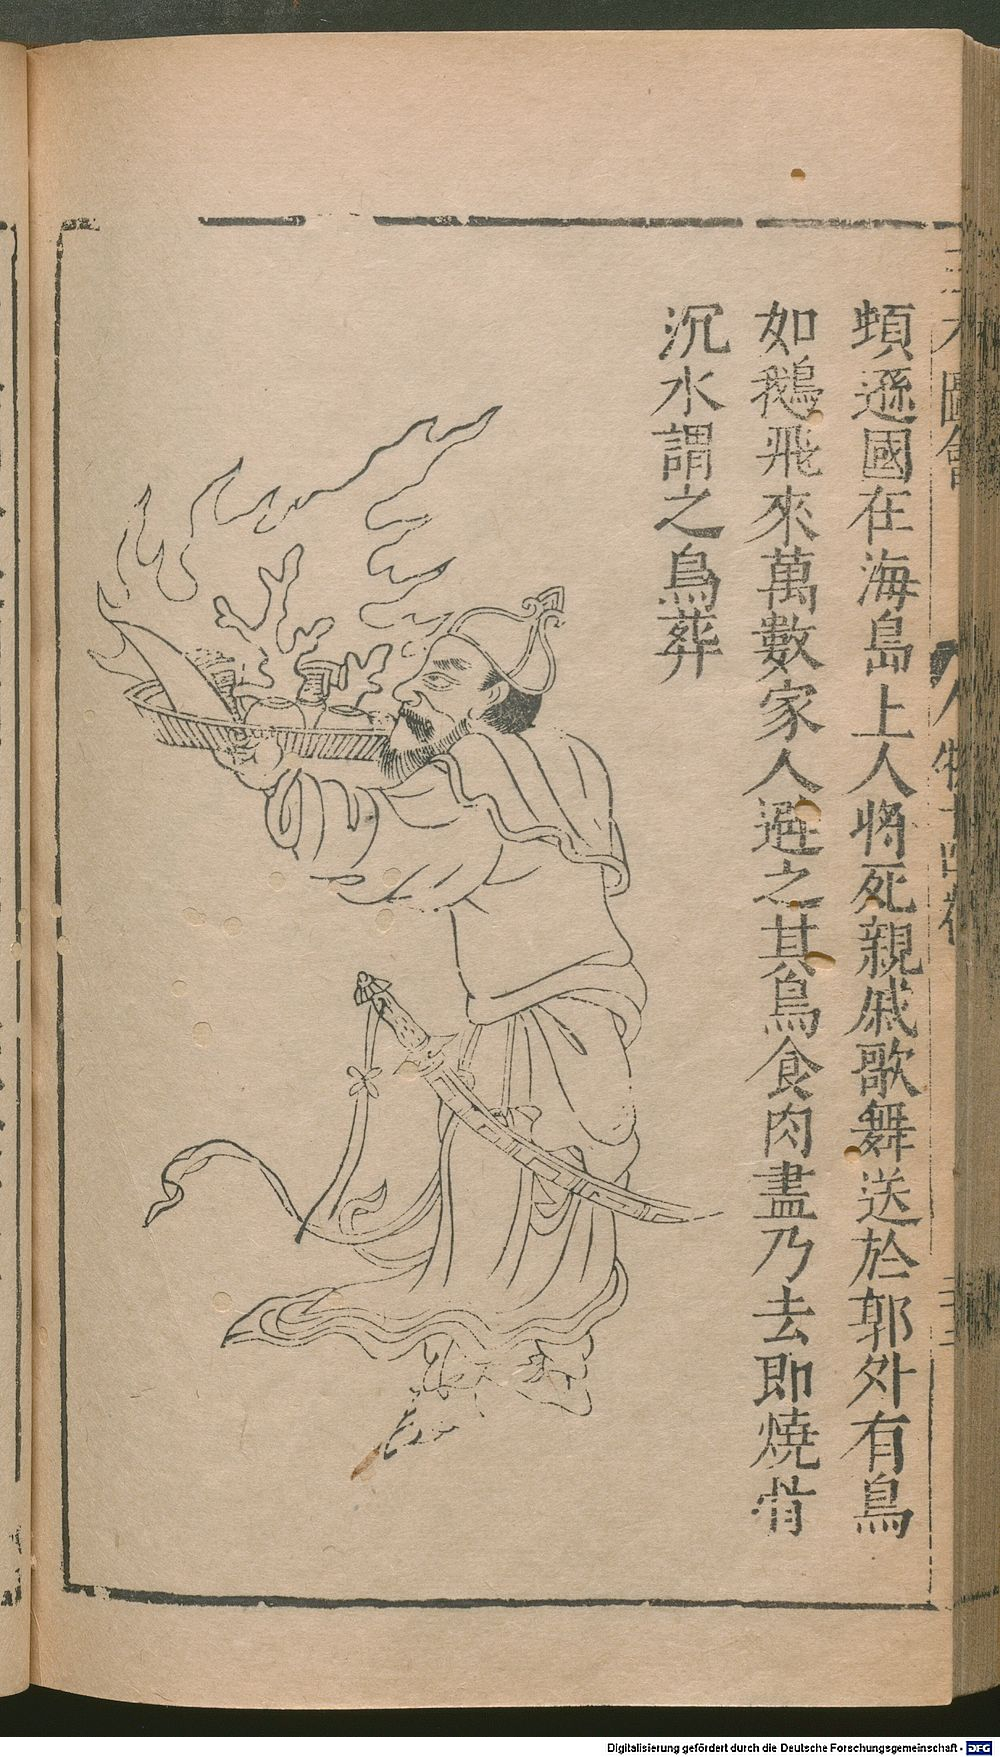 三才圖會
人物十四卷
頓遜國在海島上人將死親戚歌舞送於郭外有鳥
如鵝飛來萬數家人避之其鳥食肉盡乃去即燒骨
沉水謂之鳥葬
Digitalisierung gefördert durch die Deutsche Forschungsgemeinschaft - DFG